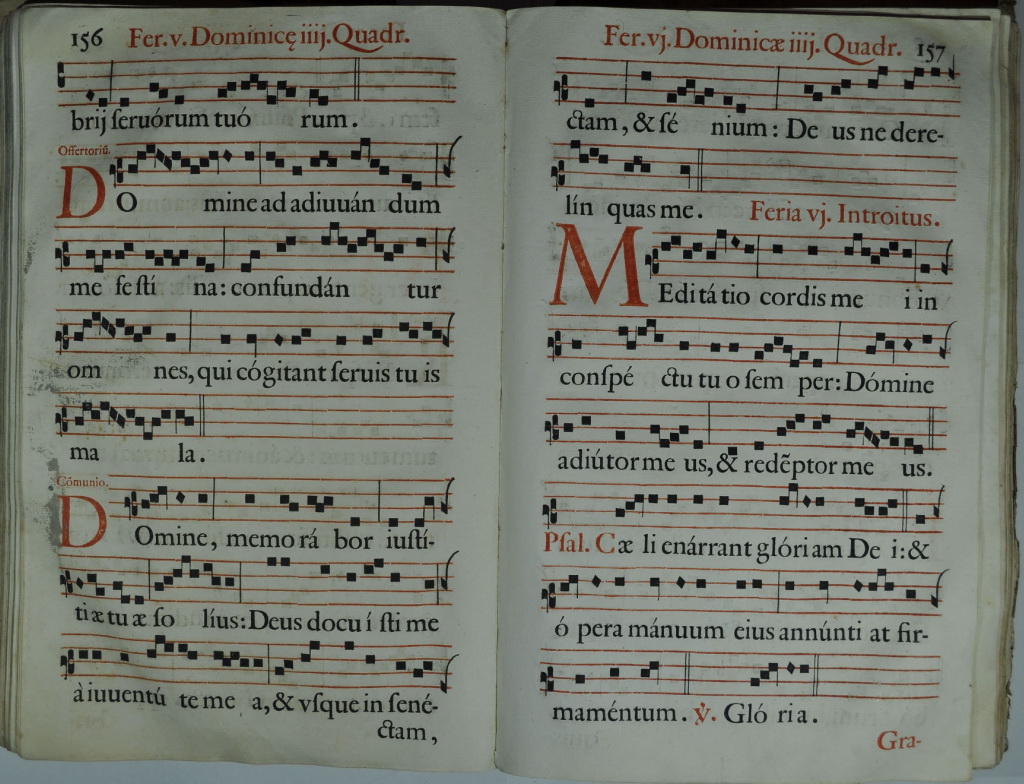 156 Fer. v. Dominicę iiij. Quadr.
brij ſeruórum tuó rum.
Offertoriũ.
DO mine ad adiuuán dum
me feſtí na: confundán tur
om nes, qui cógitant ſeruis tu is
ma la.
Cómunio.
DOmine, memo rá bor iuſtí-
tiæ tu æ ſo líus: Deus docu í ſti me
à iuuentú te me a, & vſque in ſené-
ctam,
Fer. vj. Dominicæ iiij. Quadr. 157
ctam, & ſé nium: De us ne dere-
lín quas me. Feria vj. Introitus.
MEdi tá tio cordis me i in
conſpé ctu tu o ſem per: Dómine
adiútor me us, & redẽptor me us.
Pſal. Cæ li enárrant glóri am De i: &
ó pera mánuum eius annúnti at fir-
maméntum. ℣. Gló ria.
Gra-